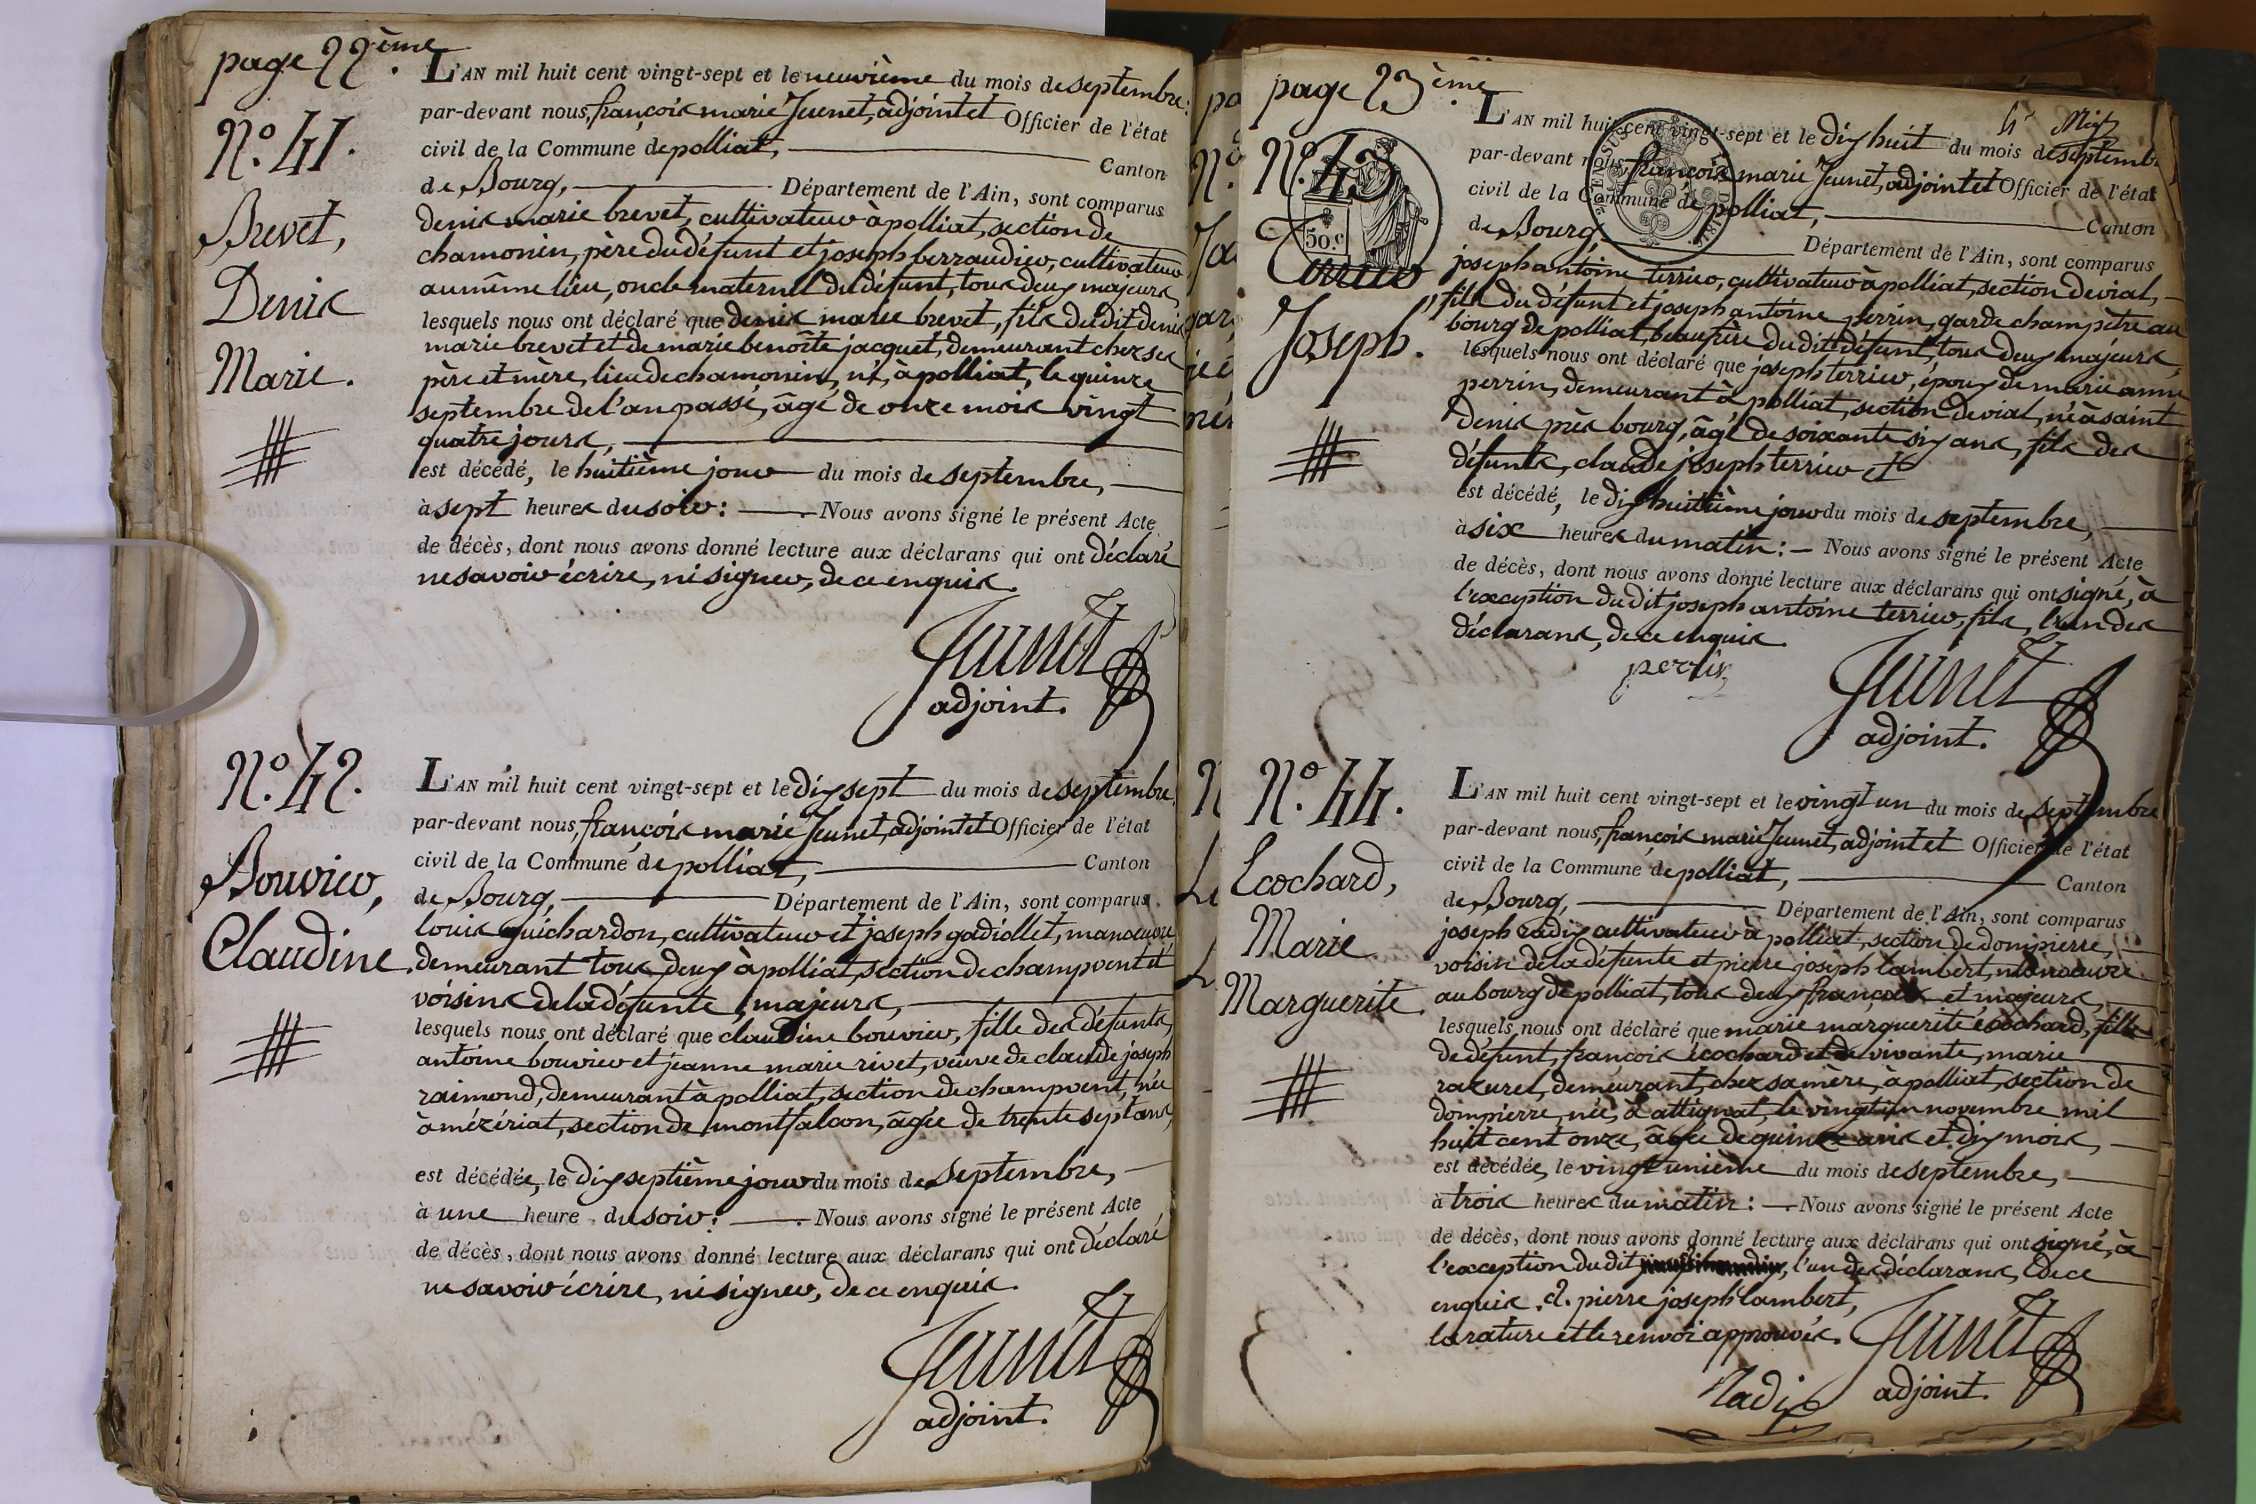 page 22ème.
N.º 41.
Brevet,
Denis
Marie.
L'AN mil huit cent vingt-sept et le neuvième du mois de septembre,
par-devant nous, françois marie Jeunet, adjoint et Officier de l'état
civil de la Commune de polliat, Canton
de Bourg, Département de l'Ain, sont comparus
denis marie brevet, cultivateur à polliat, section de
chamonin, père du défunt et joseph berraudier, cultivateur
au même lieu, oncle maternel du défunt, tous deux majeurs,
lesquels nous ont déclaré que denis marie brevet, fils du dit denis
marie brevet et de marie benoîte jacquet, demeurant chez ses
père et mère, lieu de chamonin, né, à polliat, le quinze
septembre de l'an passé, âgé de onze mois vingt
quatre jours,
est décédé, le huitième jour du mois de septembre,
à sept heures du soir: Nous avons signé le présent Acte
de décès, dont nous avons donné lecture aux déclarans qui ont déclaré
ne savoir écrire, ni signer, de ce enquis.
Jeunet
adjoint.
N.º 42.
Bouvier,
Claudine.
L'AN mil huit cent vingt-sept et le dix sept du mois de septembre,
par-devant nous, françois marie Jeunet, adjoint et Officier de l'état
civil de la Commune de polliat, Canton
de Bourg, Département de l'Ain, sont comparus
louis guichardon, cultivateur et joseph gadiollet, manoeuvre
demeurant tous deux à polliat, section de champvent et
voisins de la défunte, majeurs,
lesquels nous ont déclaré que claudine bouvier, fille des défunts,
antoine bouvier et jeanne marie rivet, veuve de claude joseph
raimond, demeurant à polliat, section de champvent, née
à mézériat, section de montfalcon, âgée de trente sept ans,
est décédée, le dix septième jour du mois de septembre,
à une heure du soir: Nous avons signé le présent Acte
de décès, dont nous avons donné lecture aux déclarans qui ont déclaré
ne savoir écrire, ni signer, de ce enquis.
Jeunet
adjoint.
page 23ème.
N.º 43
50.c
Terrier
Joseph.
L'AN mil huit cent vingt-sept et le dix huit du mois de septembre
par-devant nous françois marie Jeunet, adjoint et Officier de l'état
civil de la Commune de polliat, Canton
de Bourg, Département de l'Ain, sont comparus
joseph antoine terrier, cultivateur à polliat, section de vial,
fils du défunt et joseph antoine perrin, garde champêtre au
bourg de polliat, beaufrère du dit défunt, tous deux majeurs,
lesquels nous ont déclaré que joseph terrier, époux de marie anne
perrin, demeurant à polliat, section de vial, né à saint
Denis près bourg, âgé de soixante six ans, fils des
défunts, claude joseph terrier et
est décédé, le dix huitième jour du mois de septembre,
à six heures du matin: Nous avons signé le présent Acte
de décès, dont nous avons donné lecture aux déclarans qui ont signé, à
l'exception du dit joseph antoine terrier, fils, l'un des
déclarans, de ce enquis
perrin
Jeunet
adjoint.
N.º 44.
Ecochard,
Marie
Marguerite.
L'AN mil huit cent vingt-sept et le vingt un du mois de septembre
par-devant nous, françois marie Jeunet, adjoint et Officier de l'état
civil de la Commune de polliat, Canton
de Bourg, Département de l'Ain, sont comparus
joseph radix cultivateur à polliat, section de dompierre,
voisin de la défunte et pierre joseph lambert, manoeuvre
au bourg de polliat, tous deux français et majeurs,
lesquels nous ont déclaré que marie marguerite écochard, fille
de défunt, françois écochard et de vivante, marie
razurel, demeurant, chez sa mère, à polliat, section de
dompierre, née, à attignat, le vingt un novembre mil
huit cent onze, âgée de quinze ans et dix mois,
est décédée, le vingt unième du mois de septembre,
à trois heures du matin: Nous avons signé le présent Acte
de décès, dont nous avons donné lecture aux déclarans qui ont signé, à
l'exception du dit l'un des déclarans, de ce
enquis. pierre joseph lambert,
la rature et le renvoi approuvés.
Jeunet
adjoint.
Radix